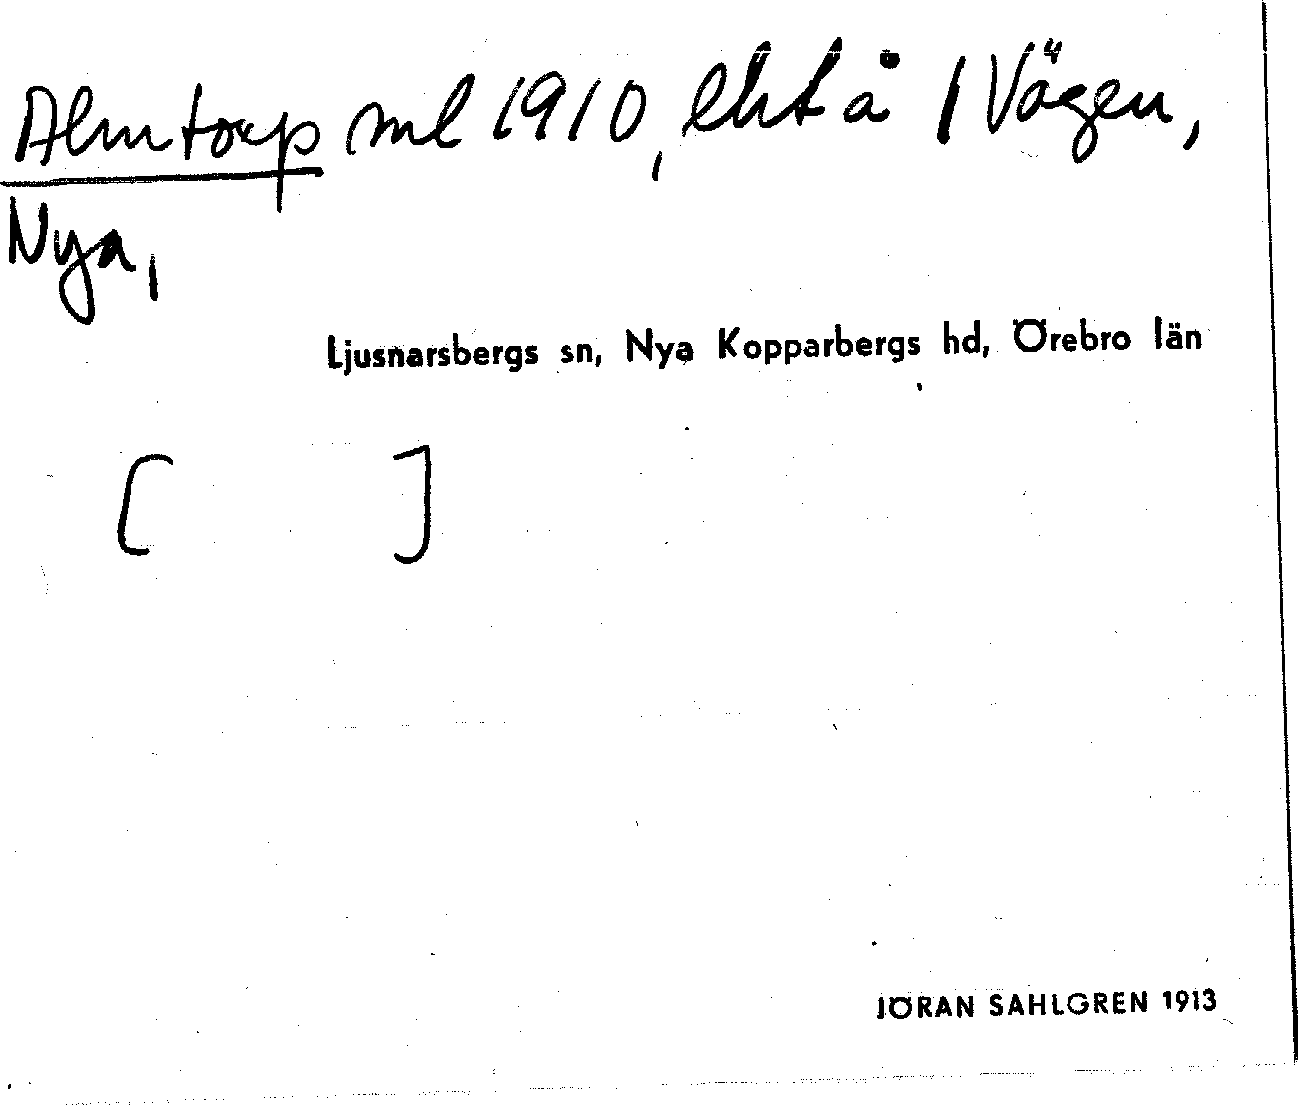 Almtorp ml 1910, lht å 1 Vägen,
Nya,
Ljusnarsbergs sn, Nya Kopparbergs hd, Örebro län
[ ]
JÖRAN SAHLGREN 1913